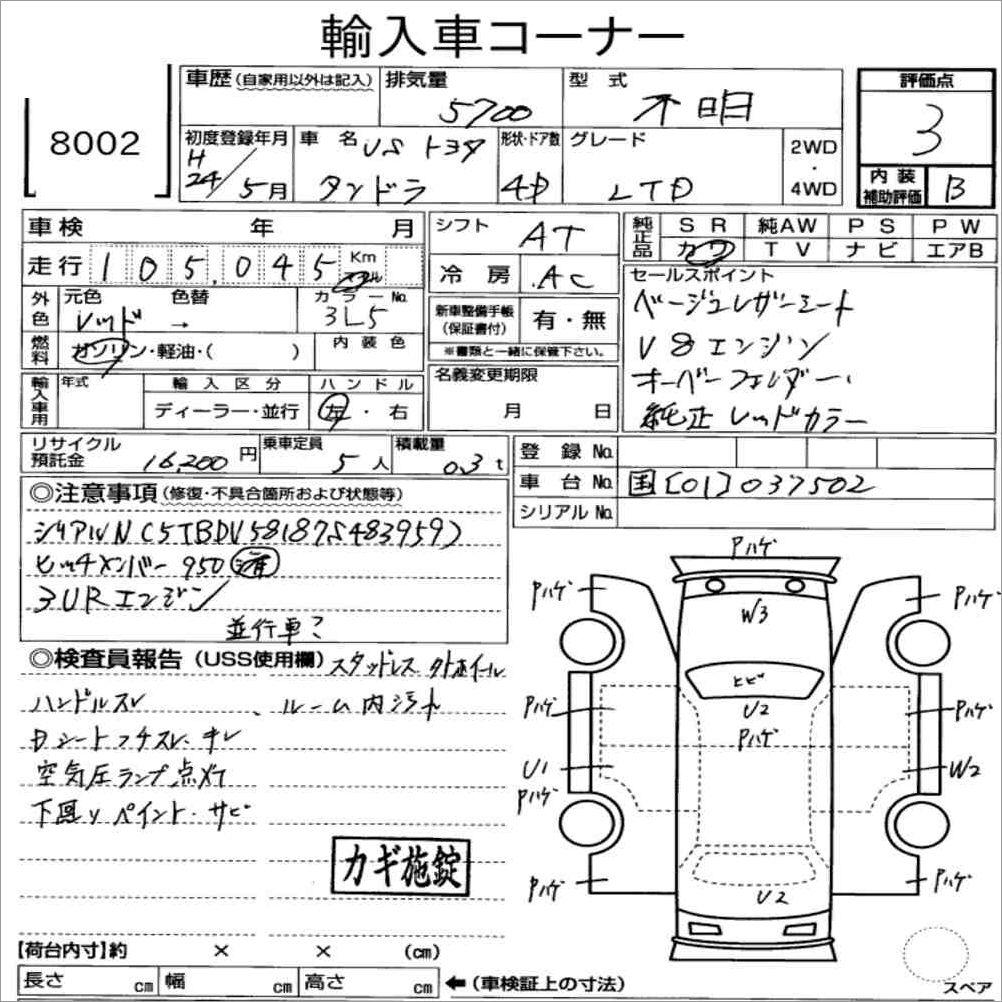 輸入車コーナー
8002
車歴 (自家用以外は記入)
排気量 5700
型式 不明
評価点 3
初度登録年月 H24/5月
車名 US トヨタ タンドラ
形状・ドア数 4D
グレード LTD
2WD・4WD
内装補助評価 B
車検 年 月
走行 105,045 Km マイル
シフト AT
冷房 AC
純正品 SR 純AW PS PW
カワ TV ナビ エアB
外色 元色 レッド → 色替
カラーNo. 3L5
燃料 ガソリン・軽油・( )
内装色
新車整備手帳(保証書付) 有・無
※書類と一緒に保管下さい。
セールスポイント
ベージュレザーシート
V8エンジン
オーバーフェンダー、
純正レッドカラー
輸入車用 年式
輸入区分 ディーラー・並行
ハンドル 左・右
名義変更期限 月 日
リサイクル預託金 16,200円
乗車定員 5人
積載量 0.3t
登録No.
車台No. 国[01]037502
シリアルNo.
◎注意事項 (修復・不具合箇所および状態等)
シリアルN(5TBDV58187S483959)
ヒッチメンバー 950 済
3URエンジン
並行車?
◎検査員報告 (USS使用欄) スタッドレス 外ホイール
ハンドルスレ、ルーム内汚れ
Dシートフチスレ・キレ
空気圧ランプ点灯
下廻りペイント・サビ
カギ施錠
Pハゲ
Pハゲ
Pハゲ
W3
ヒビ
Pハゲ
U2
Pハゲ
Pハゲ
U1
Pハゲ
W2
Pハゲ
U2
Pハゲ
スペア
【荷台内寸】約 × × (cm)
長さ cm 幅 cm 高さ cm ←(車検証上の寸法)